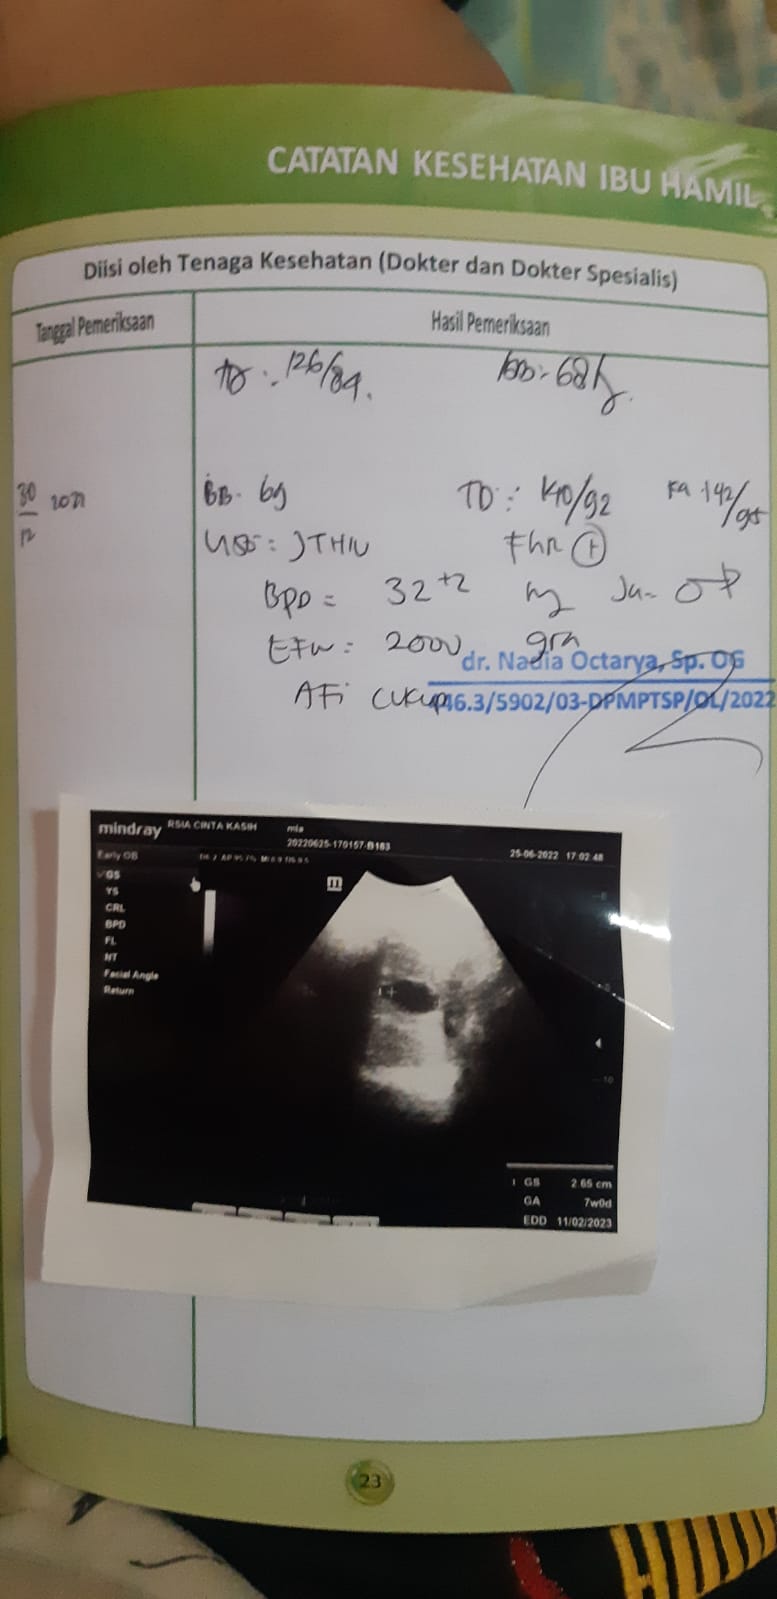 CATATAN KESEHATAN IBU HAMIL
Diisi oleh Tenaga Kesehatan (Dokter dan Dokter Spesialis)
Tanggal Pemeriksaan Hasil Pemeriksaan
TD : 126/84. BB : 68
30/12 BB : 69 TD : /92
USG : JTHIU FHR +
BPD = 32+2
EFW = 2000 grm
dr. Nadia Octarya, Sp. OG
AFI cukup 46.3/5902/03-DPMPTSP/OL/2022
mindray RSIA CINTA KASIH mia
20220625-170157-B163
25-06-2022 17:02:48
Early OB
GS
YS
CRL
BPD
FL
NT
Facial Angle
Return
10
1 GS 2.65 cm
GA 7w0d
EDD 11/02/2023
23